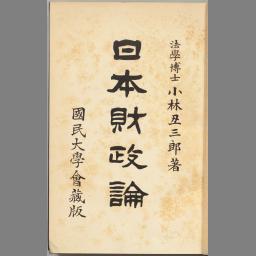 法學博士 小林丑三郎著
日本財政論
國民大學會藏版